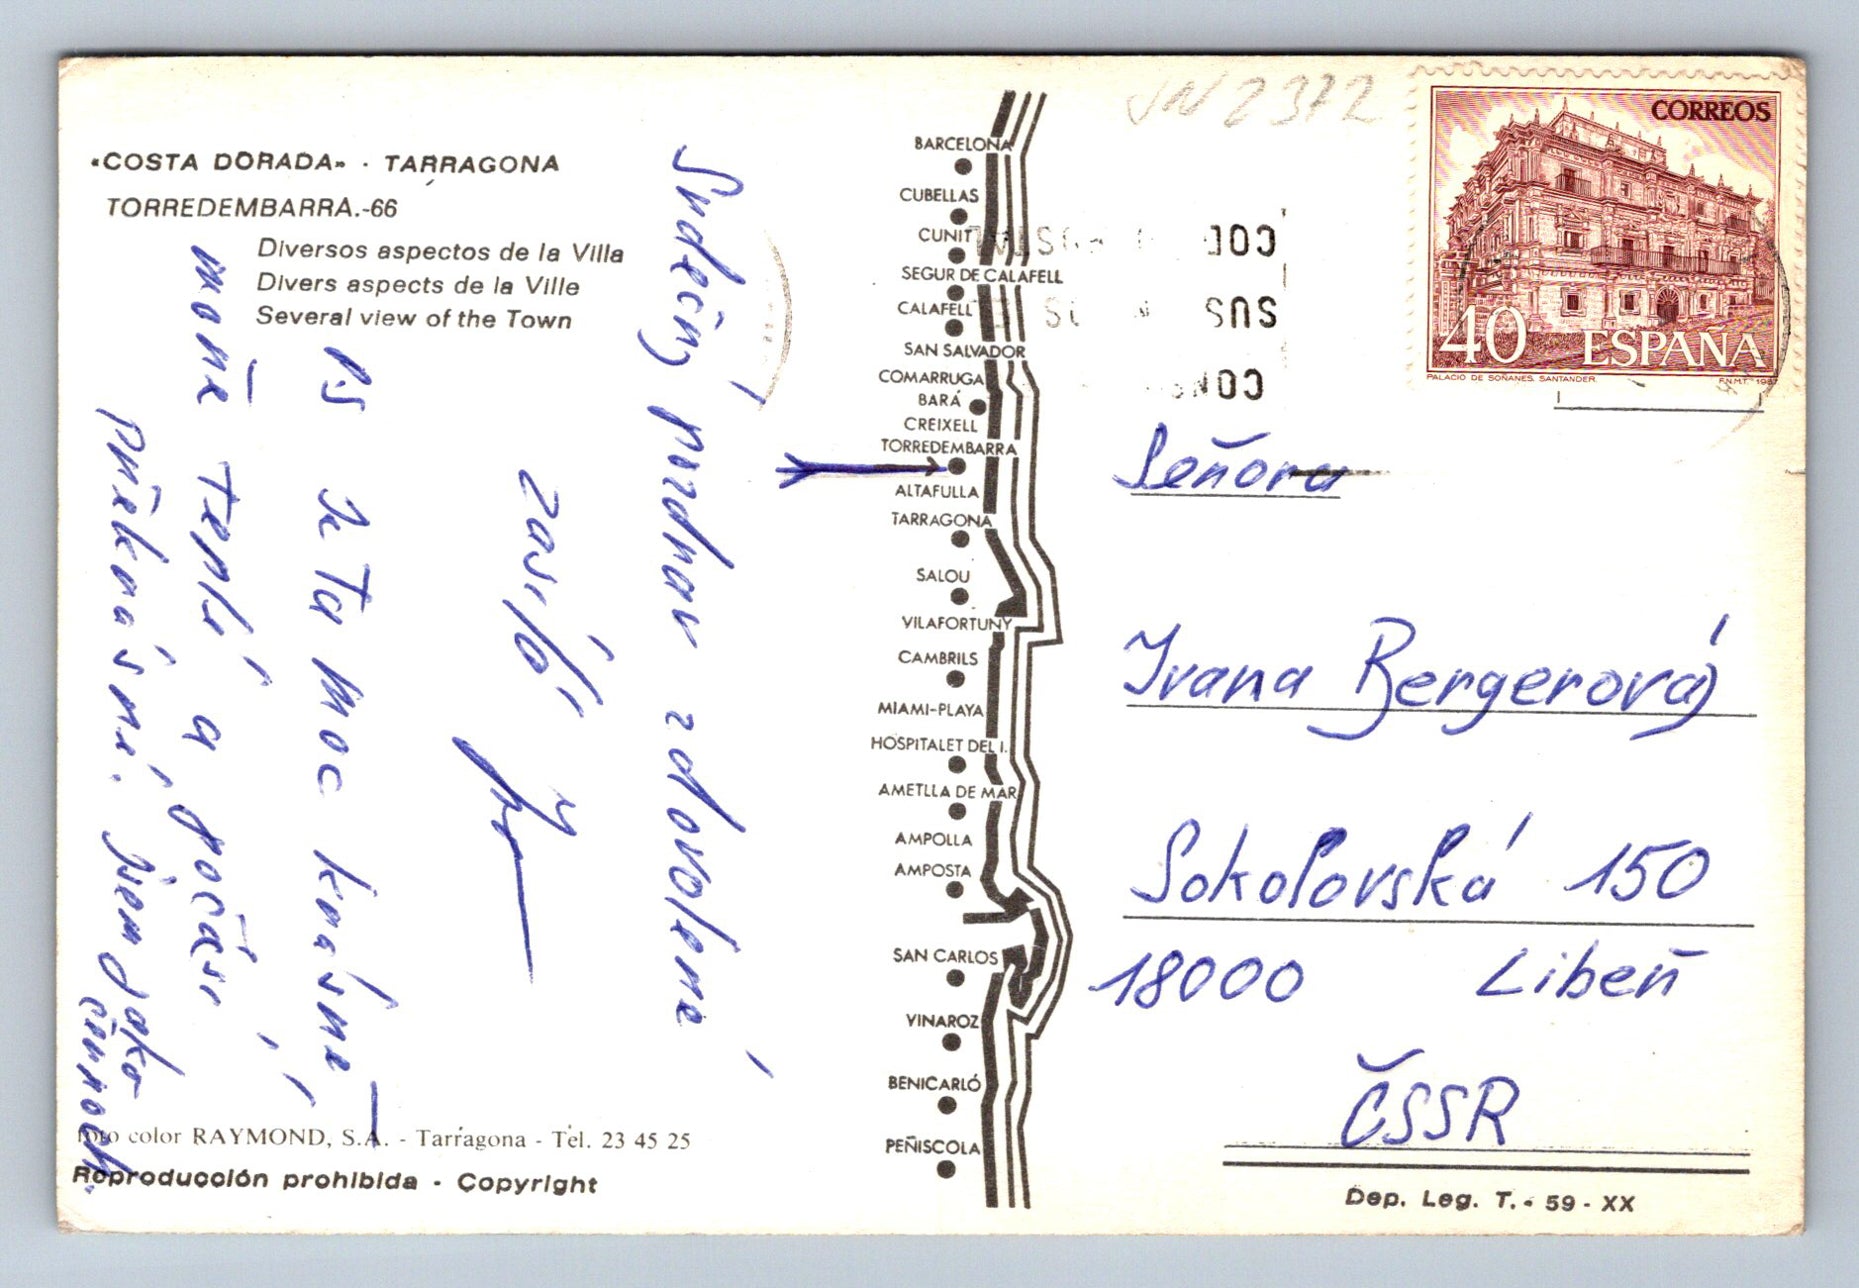 «COSTA DORADA» · TARRAGONA
TORREDEMBARRA.-66
Diversos aspectos de la Villa
Divers aspects de la Ville
Several view of the Town
Srdečný pozdrav z dovolené
zasílá
PS Je tu moc krásně
moře teplé a počasí
překrásné. Jsem jako
černoch.
Foto color RAYMOND, S.A. - Tarragona - Tel. 23 45 25
Reproducción prohibida - Copyright
BARCELONA
CUBELLAS
CUNIT
SEGUR DE CALAFELL
CALAFELL
SAN SALVADOR
COMARRUGA
BARÁ
CREIXELL
TORREDEMBARRA
ALTAFULLA
TARRAGONA
SALOU
VILAFORTUNY
CAMBRILS
MIAMI-PLAYA
HOSPITALET DEL I.
AMETLLA DE MAR
AMPOLLA
AMPOSTA
SAN CARLOS
VINAROZ
BENICARLÓ
PEÑISCOLA
CORREOS
40 ESPAÑA
PALACIO DE SOÑANES. SANTANDER.
F.N.M.T.
Señora
Ivana Bergerová
Sokolovská 150
18000 Libeň
ČSSR
Dep. Leg. T. - 59 - XX